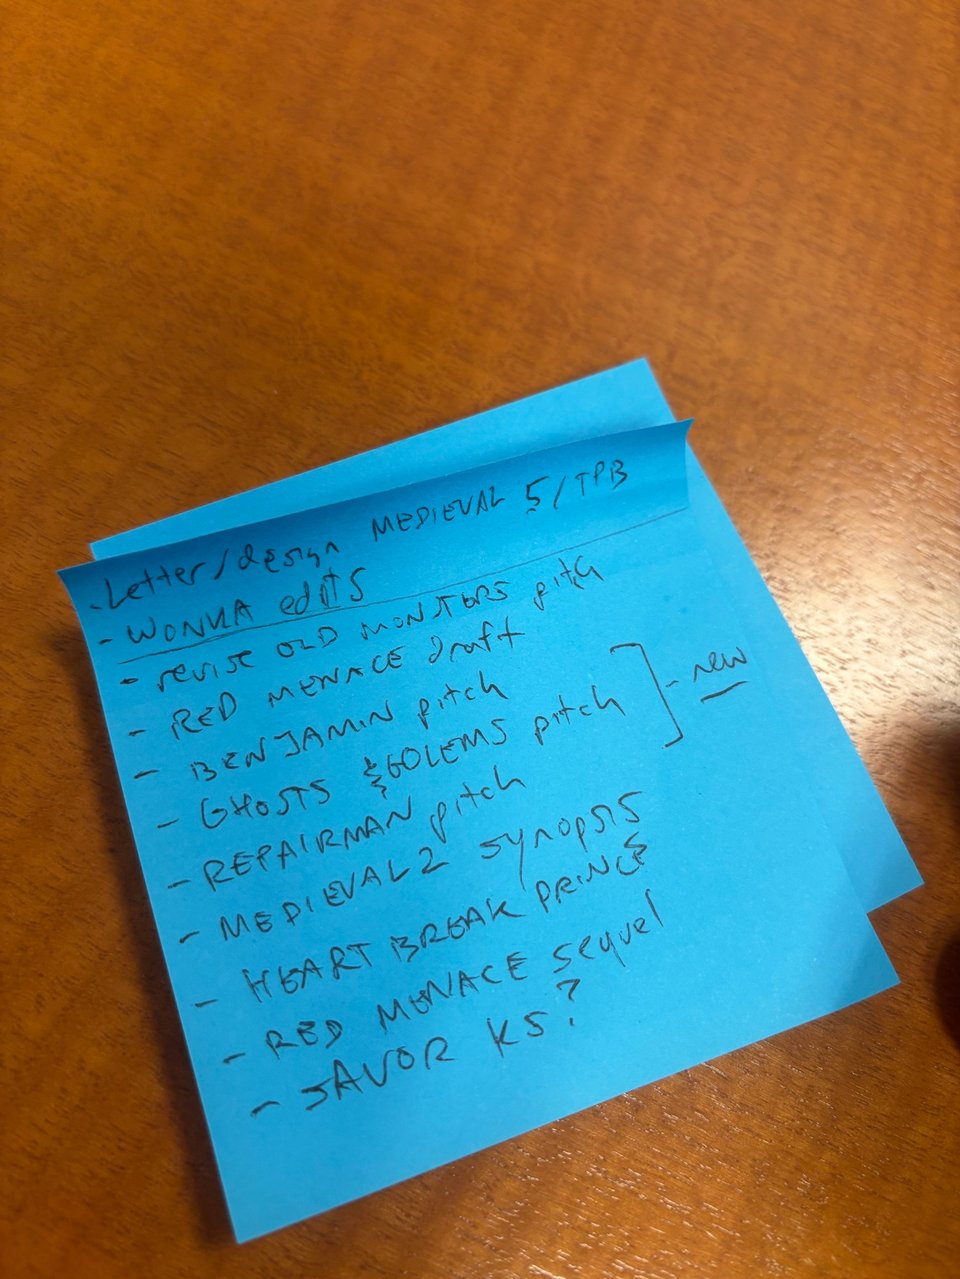 - Letter/design MEDIEVAL 5/TPB
- WONKA edits
- revise OLD MONSTERS pitch
- RED MENACE draft
- BENJAMIN pitch
- GHOSTS & GOLEMS pitch ] - new
- REPAIRMAN pitch
- MEDIEVAL 2 synopsis
- HEART BREAK PRINCE
- RED MENACE sequel
- SAVOR KS?